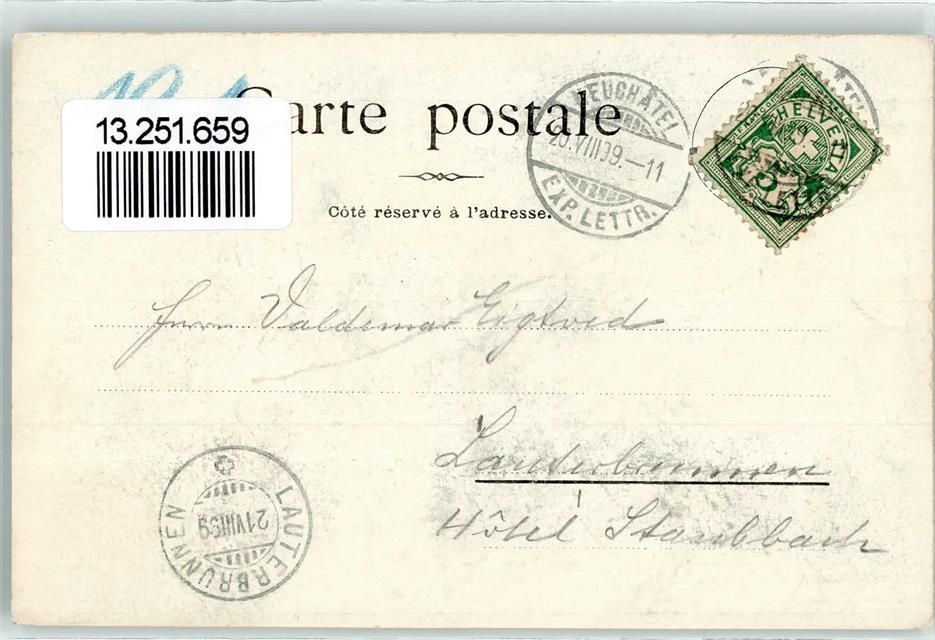 13.251.659
Carte postale
Côté réservé à l'adresse.
NEUCHATEL
20.VIII.99.–11
EXP. LETTR.
HELVETIA
5
Herrn Valdemar Eigtved
Lauterbrunnen
Hôtel Staubbach
LAUTERBRUNNEN
21 VIII 99